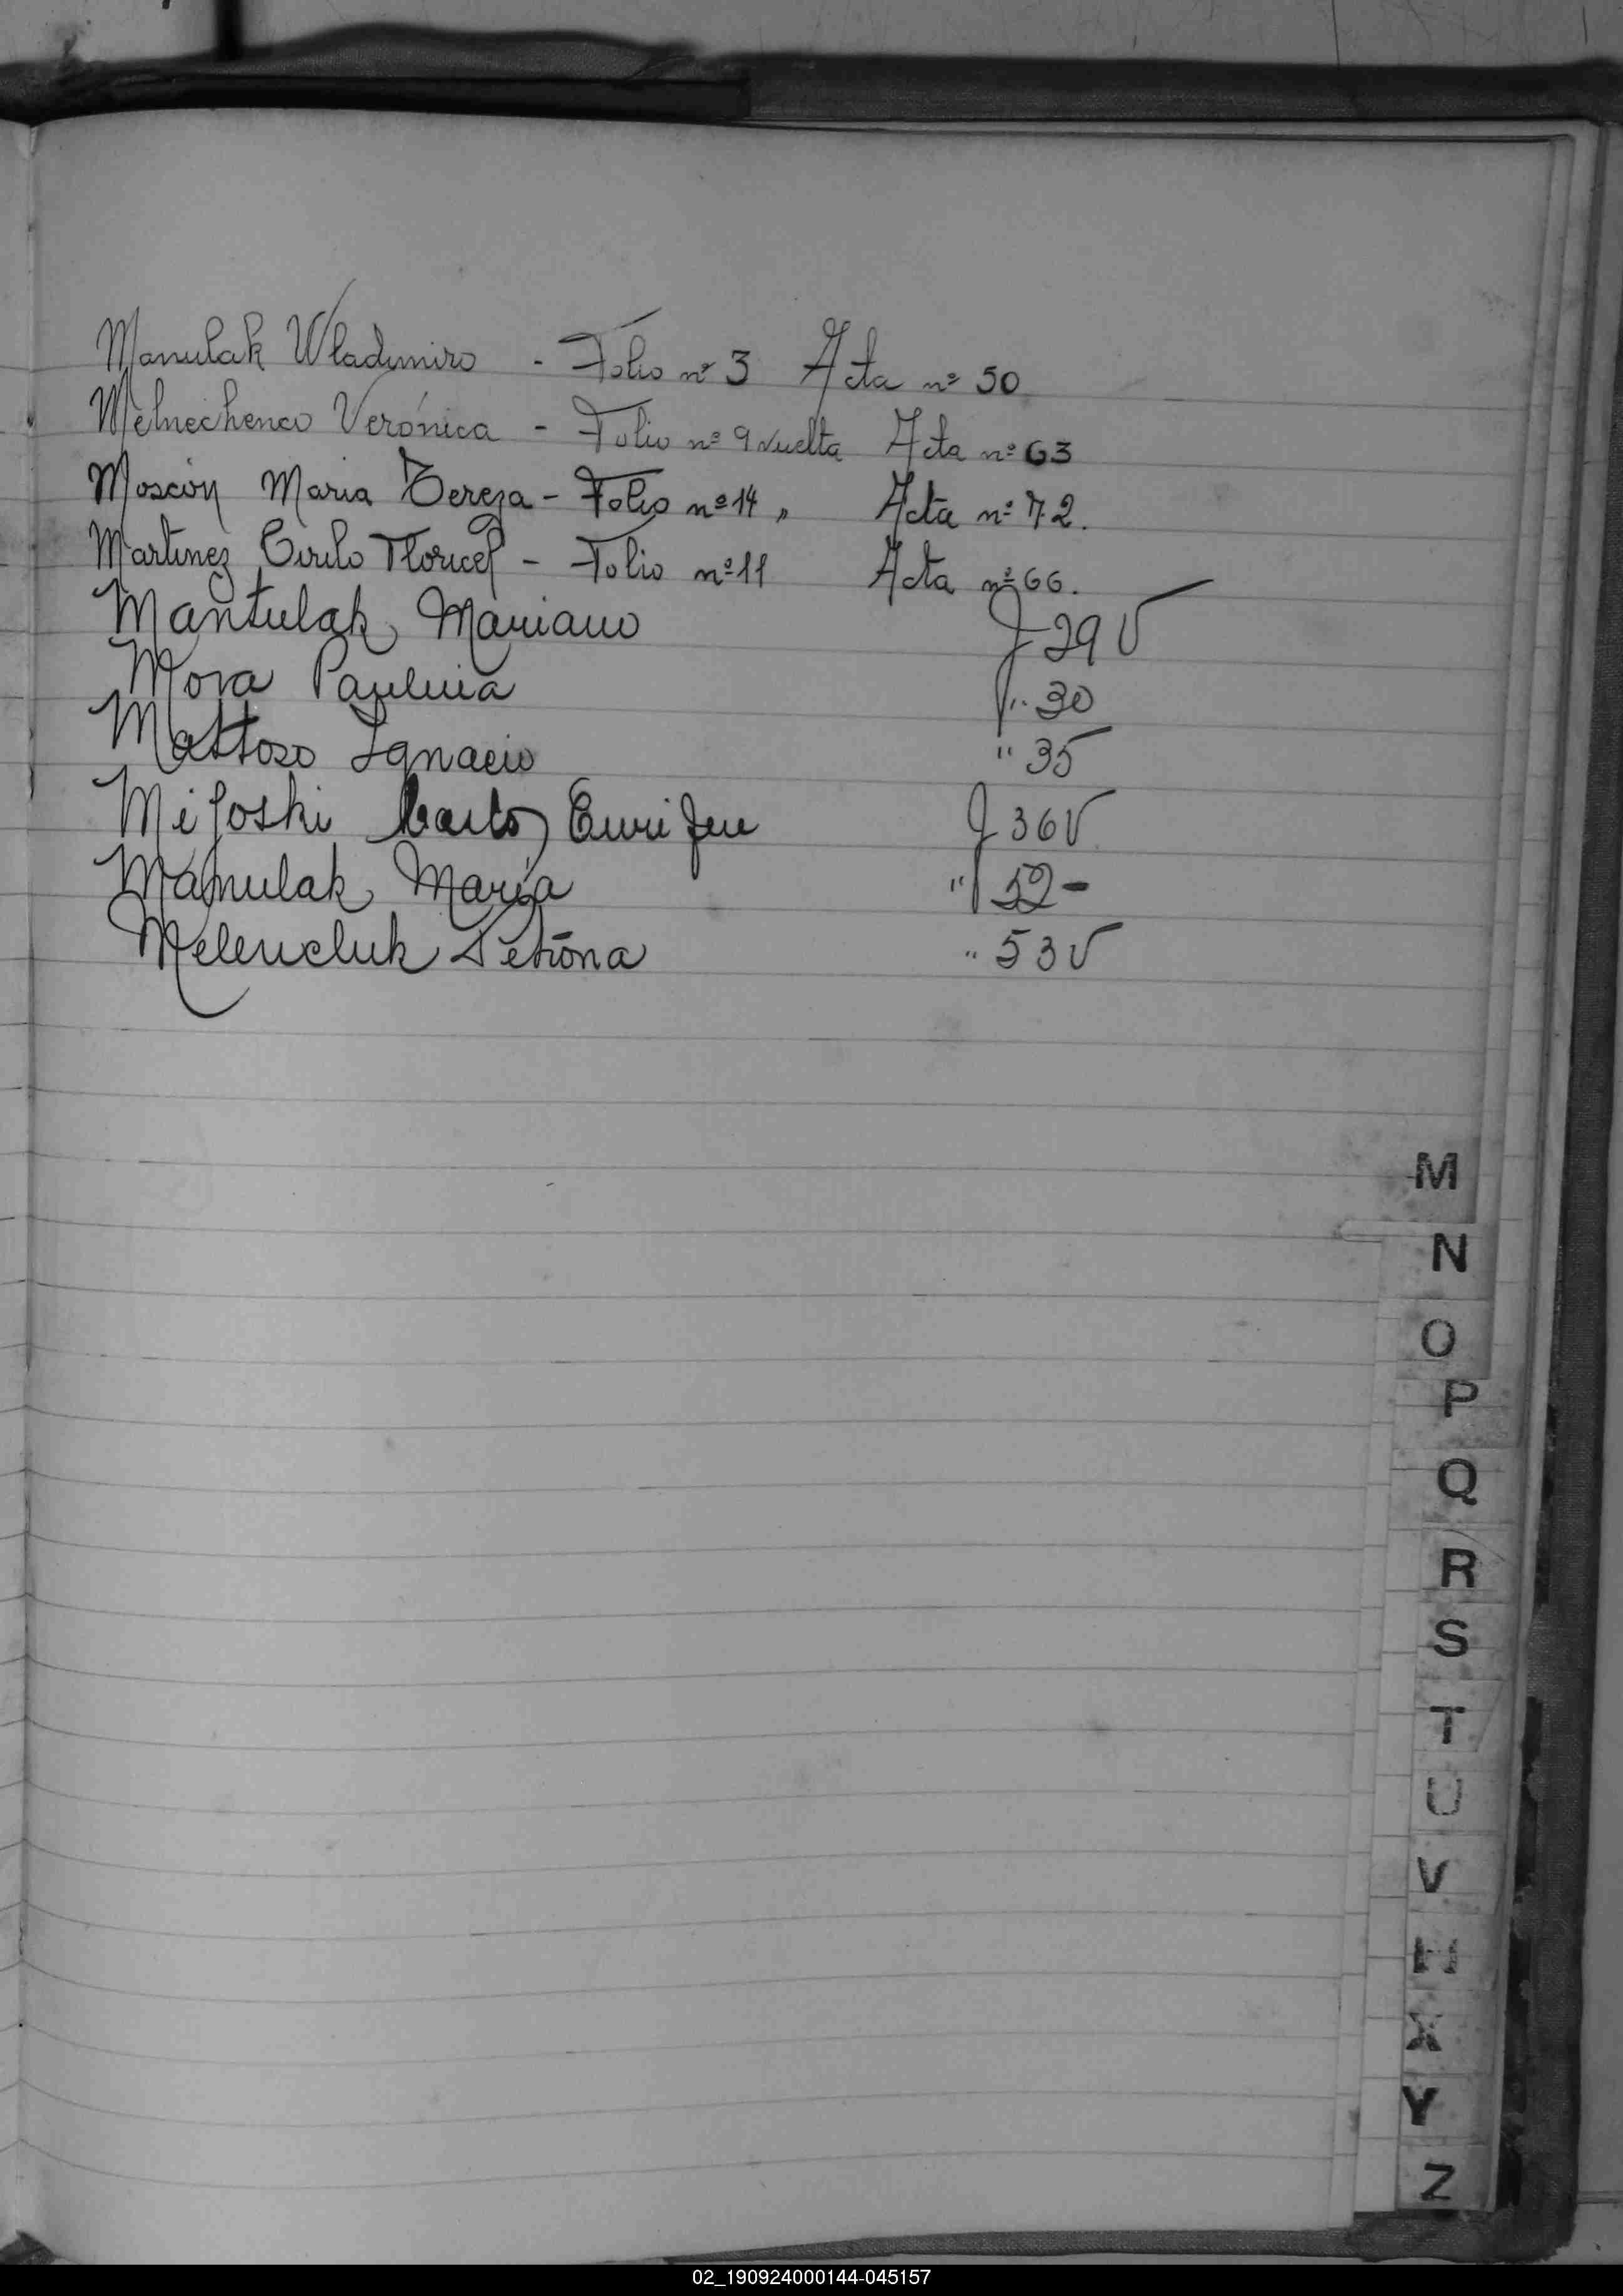 Manulak Wladimiro - Folio nº 3 Acta nº 50
Melnechenco Verónica - Folio nº 9 vuelta Acta nº 63
Moscón Maria Tereza - Folio nº 14 " Acta nº 72.
Martinez Cirilo - Folio nº 11 Acta nº 66.
Mantulak Mariano F 29 V
Mora Paulina " 30
Mattoso Ignacio " 35
Carlos F 36 V
Mamulak María " 52 -
" 53 V
M
N
O
P
Q
R
S
T
U
V
X
Y
Z
02_190924000144-045157